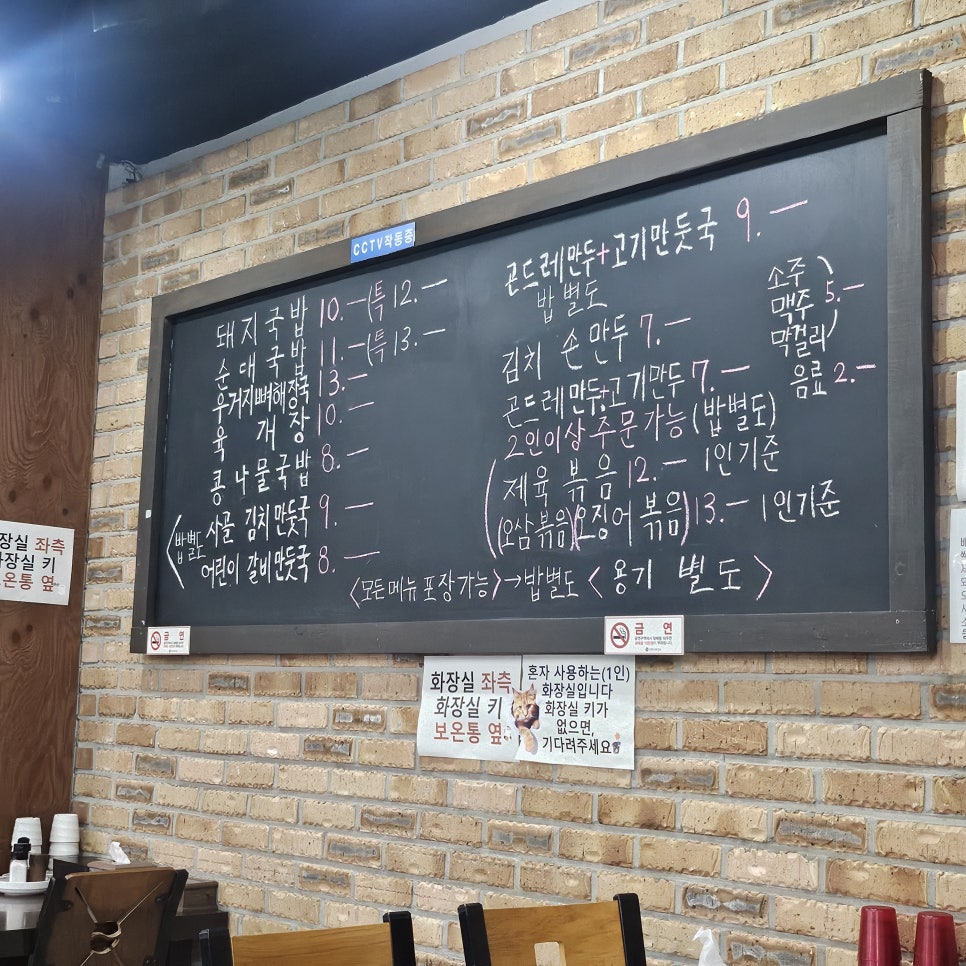 CCTV작동중
돼지국밥 10.- (특 12.-
순대국밥 11.- (특 13.-
우거지뼈해장국 13.-
육개장 10.-
콩나물국밥 8.-
<밥별도
사골 김치만둣국 9.-
어린이 갈비만둣국 8.-
곤드레만두+고기만둣국 9.-
밥 별도
김치 손만두 7.-
곤드레만두+고기만두 7.-
2인이상 주문가능 (밥별도)
(제육볶음 12.- 1인기준
(오삼볶음)(오징어볶음) 13.- 1인기준
소주
맥주 5.-
막걸리
음료 2.-
<모든메뉴 포장가능>→밥별도 <용기 별도>
금 연
금 연
화장실 좌측
화장실 키
보온통 옆
혼자 사용하는(1인)
화장실입니다
화장실 키가
없으면,
기다려주세요
장실 좌측
화장실 키
보온통 옆